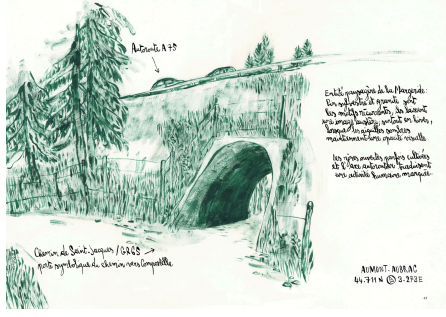 Autoroute A 75
Entité paysagère de la Margeride :
Pin sylvestre et granit sont
les motifs récurrents, ils laissent
une image austère, surtout en hiver,
lorsque les aiguilles sombres
maintiennent une opacité visuelle.
Les rives ouvertes parfois cultivées
et l'axe autoroutier traduisent
une activité humaine marquée.
Chemin de Saint-Jacques / GR65 →
porte symbolique du chemin vers Compostelle
AUMONT-AUBRAC
44.711 N 3.273 E